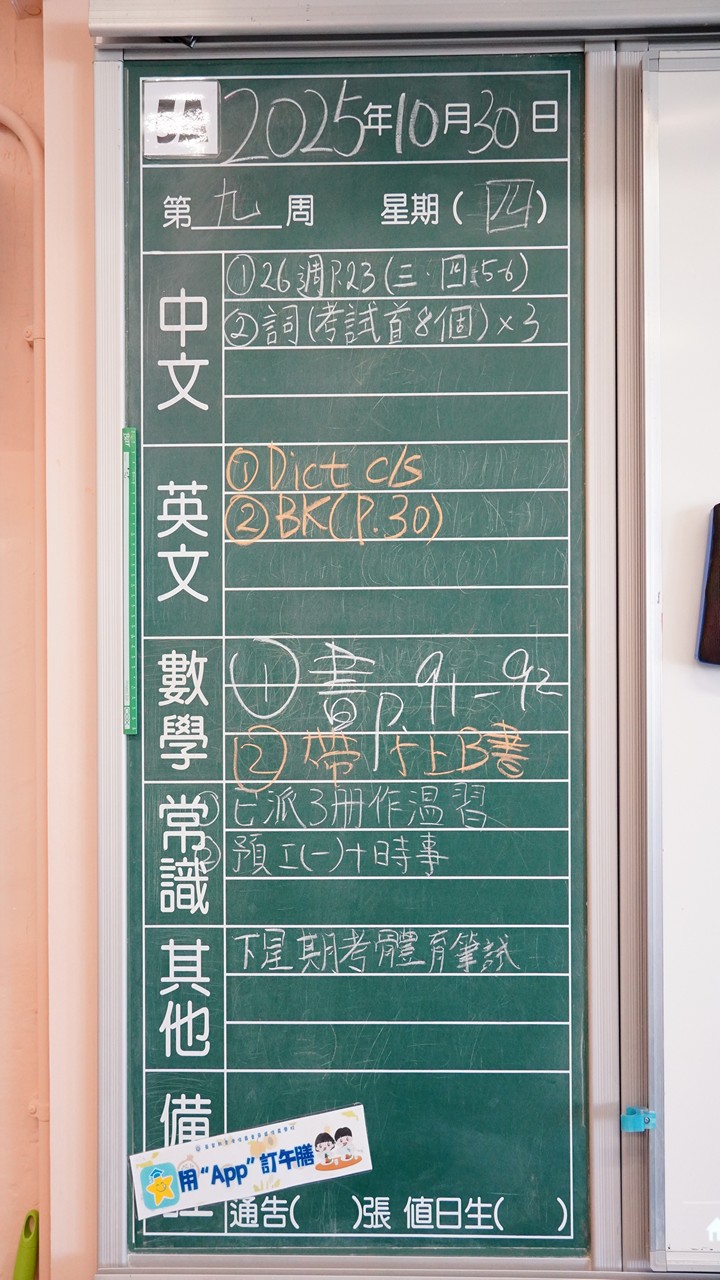 5A 2025年10月30日
第 九 周 星期( 四 )
中文
①26週P.23(三．四:5-6)
②詞(考試首8個)×3
英文
①Dict c/s
②BK(P.30)
數學
①書P. 91-92
②帶5上B書
常識
①已派3冊作温習
②預工(一)+時事
其他
下星期考體育筆試
備
用“App”訂午膳
通告( )張 值日生( )